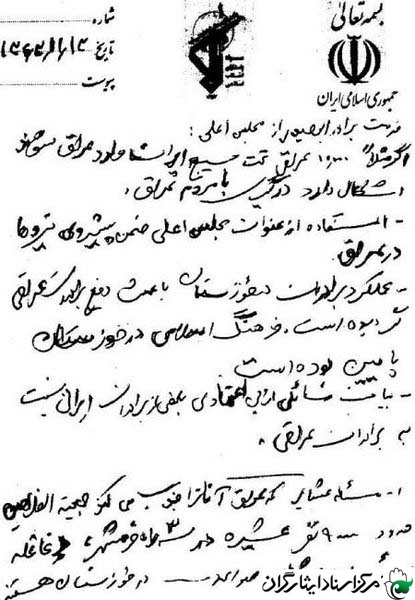 بسمه تعالی
جمهوری اسلامی ایران
شماره
تاریخ ۱۳۶۲/۱/۱۳
پیوست
خدمت برادر ابو حیدر از مجلس اعلی :
اگر مثلاً ۱۰۰۰۰ عراقی تحت بسیج ایران شد وارد عراق شوند
اشکال دارد درگیری با مردم عراق .
- استفاده از عنوان مجلس اعلی ضمن پیشروی نیروها
در عراق .
- عملکرد برادران خوزستان باعث دفع برادران عراقی
گردیده است . فرهنگ اسلامی در خوزستان
پایین بوده است .
- بیان مسائلی از بی اعتمادی بعضی از برادران ایرانی نسبت
به برادران عراقی .
۱ - مسئله عشایر که عراق آنها را
حدود ۹۰۰۰ نفر عشیره در ۳ ماه خرمشهر ،
در خوزستان هستند
مرکز اسناد ایثارگران